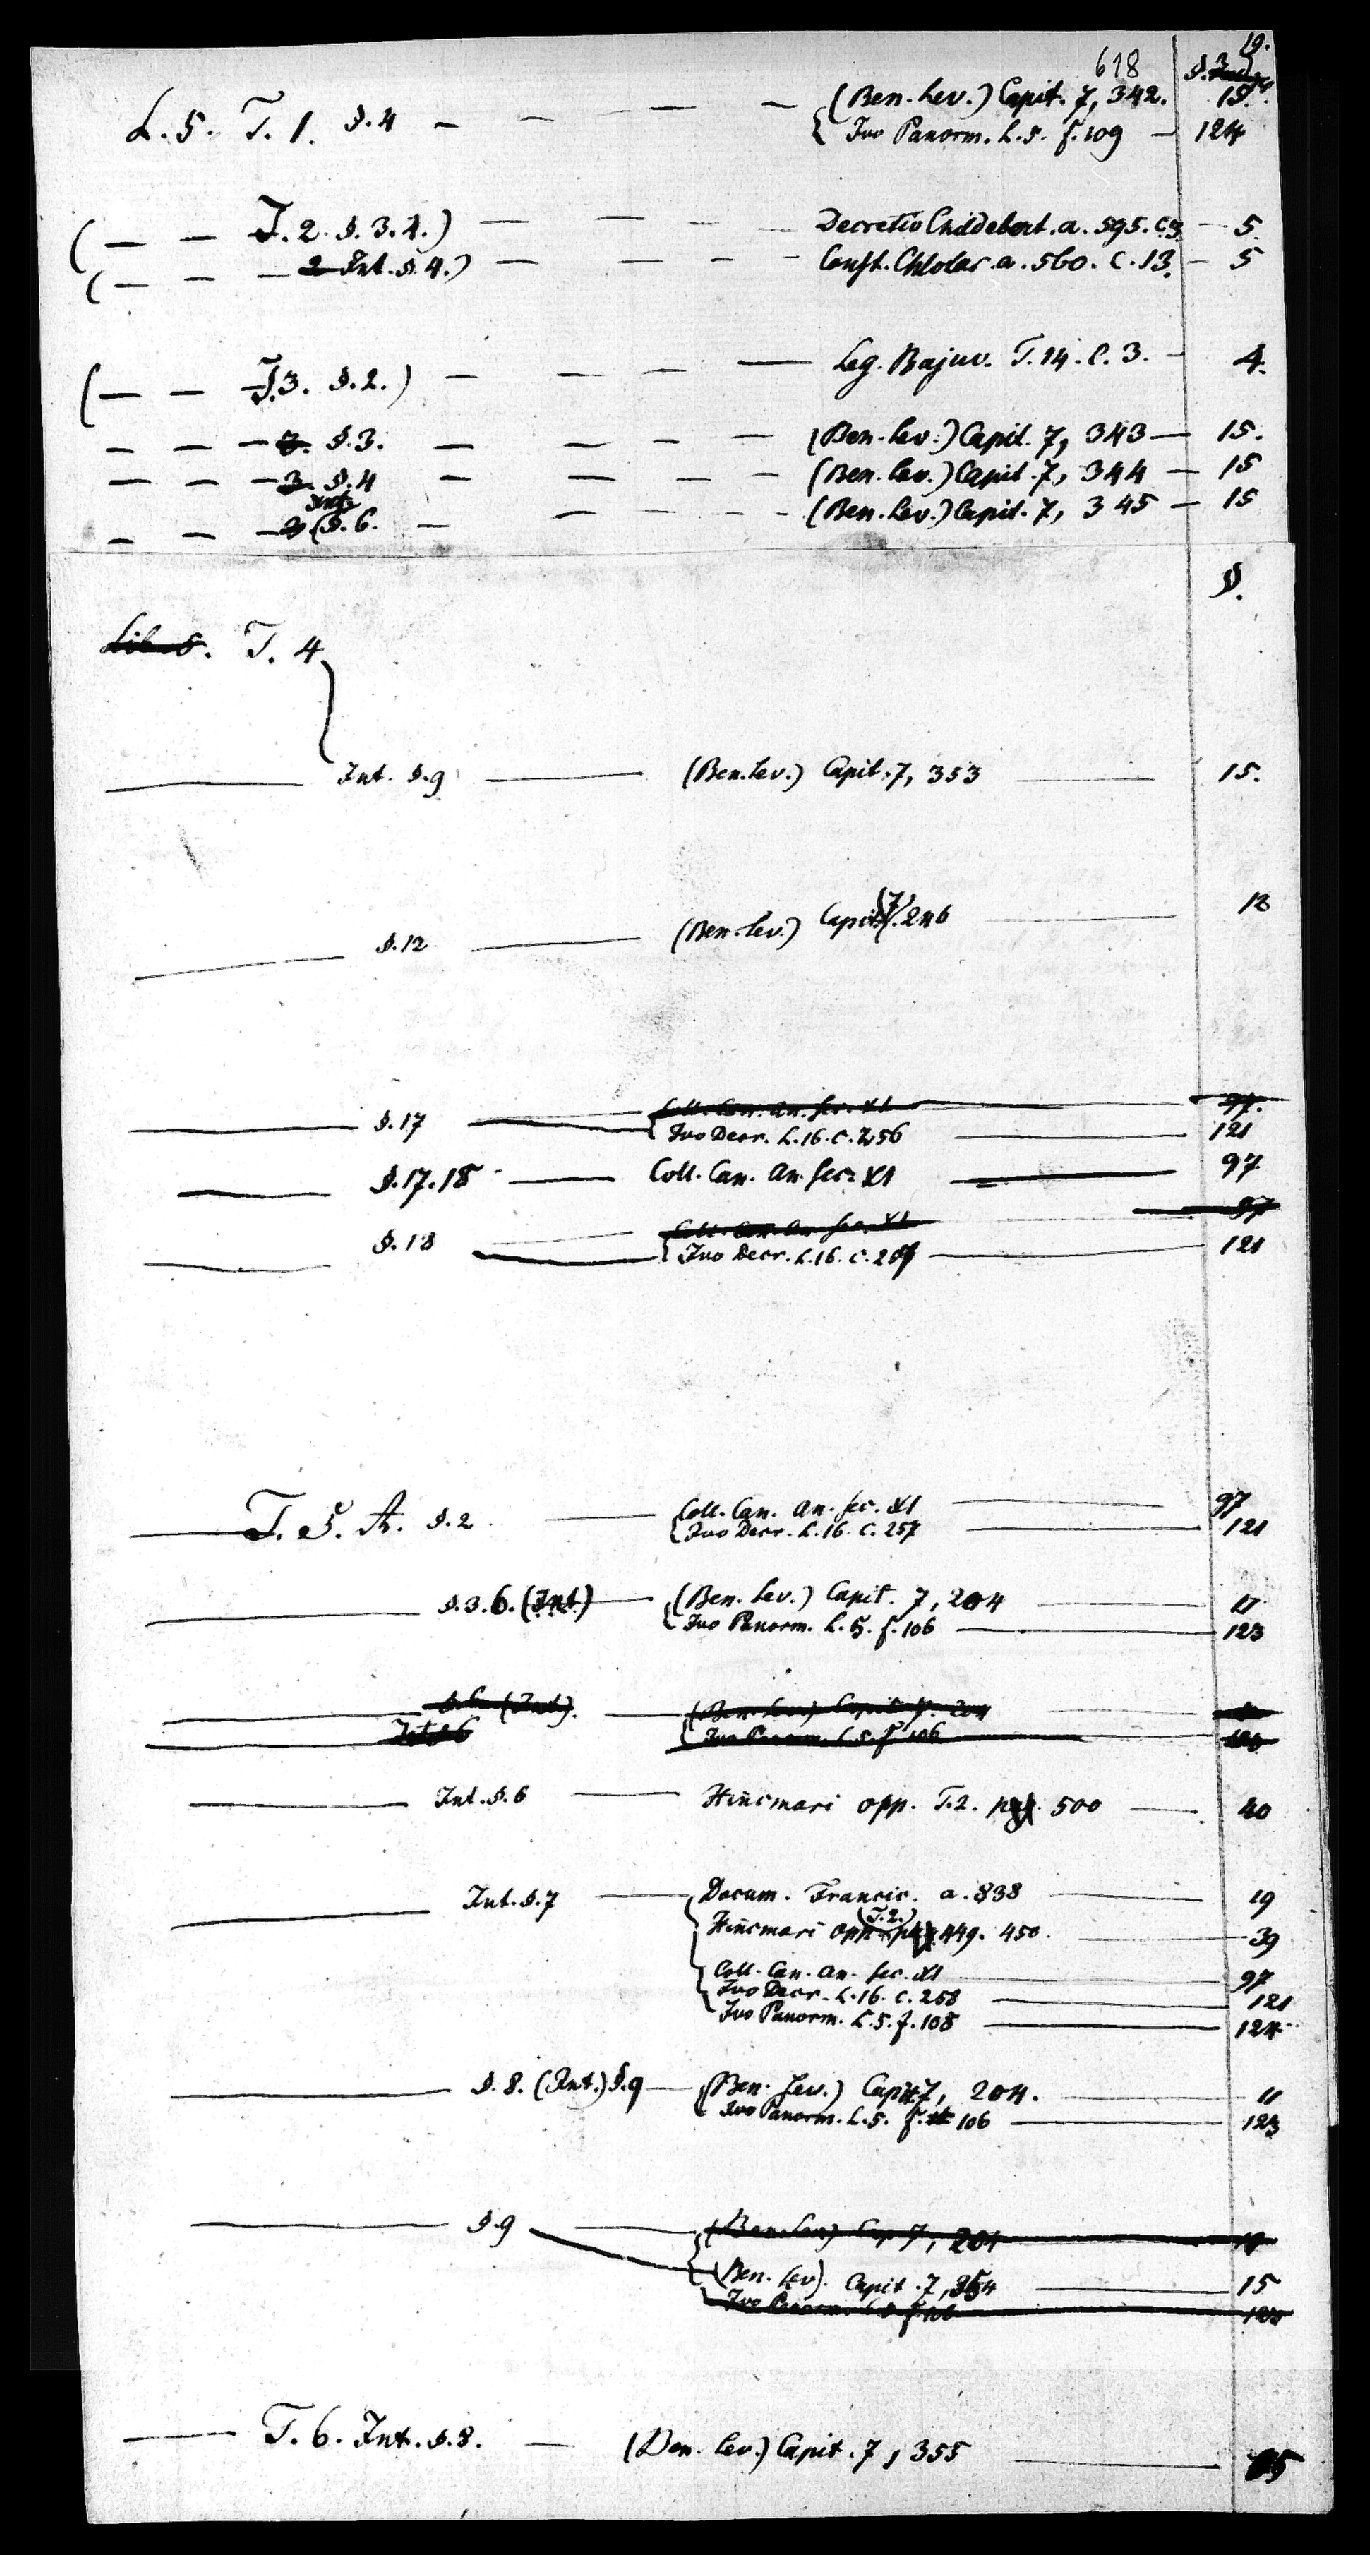 19.
618
L. 5. T. 1. §. 4 — — — — { (Ben. Lev.) Capit. 7, 342. 15.
Ivo Panorm. L. 5. f. 109 — 124
( — — T. 2. §. 3. 4.) — — — Decretio Childebert. a. 595. c. 3 — 5.
( — — — 2 Int. §. 4.) — — — — Const. Chlotar. a. 560. c. 13. — 5
( — — T. 3. §. 2.) — — — — Leg. Bajuv. T. 14. C. 3. — 4.
— — — 3. §. 3. — — — — (Ben. Lev.) Capit. 7, 343 — 15.
— — — 3. §. 4 — — — — (Ben. Lev.) Capit. 7, 344 — 15
Int.
— — — §. 6. — — — — (Ben. Lev.) Capit. 7, 345 — 15
§.
Lib. 5. T. 4
— Int. §. 9 — (Ben. Lev.) Capit. 7, 353 — 15.
— §. 12 — (Ben. Lev.) Capit. 7. 246 — 12
— §. 17 — { Coll. Can. an. sec. XI — 97.
Ivo Decr. L. 16. c. 256 — 121
— §. 17. 18 — Coll. Can. an. sec. XI — 97
— §. 18 — { Coll. Can. an. sec. XI — 97
Ivo Decr. L. 16. c. — 121
— T. 5. §. 2 — { Coll. Can. an. sec. XI — 97
Ivo Decr. L. 16. c. 257 — 121
— §. 3. 6. (Int.) — { (Ben. Lev.) Capit. 7, 204 — 11
Ivo Panorm. L. 5. f. 106 — 123
— §. 6. (Int.). — { (Ben. Lev.) Capit. 7. 204
Int. §. 6 — Ivo Panorm. L. 5. f. 106 — 123
— Int. §. 6 — Hincmari opp. T. 2. pag. 500 — 40
— Int. §. 7 — { Docum. Francic. a. 838 — 19
(T. 2.)
Hincmari opp. pag. 449. 450. — 39
Coll. Can. an. sec. XI — 97
Ivo Decr. L. 16. c. 258 — 121
Ivo Panorm. L. 5. f. 108 — 124
— §. 8. (Int.) §. 9 — { (Ben. Lev.) Capit. 7, 204. — 11
Ivo Panorm. L. 5. f. 106 — 123
— §. 9 — { (Ben. Lev.) Cap. 7, 201
(Ben. Lev). Capit. 7, 354 — 15
Ivo Panorm. L. 5. f. 106 — 123
— T. 6. Int. §. 8. — (Ben. Lev.) Capit. 7, 355 — 15